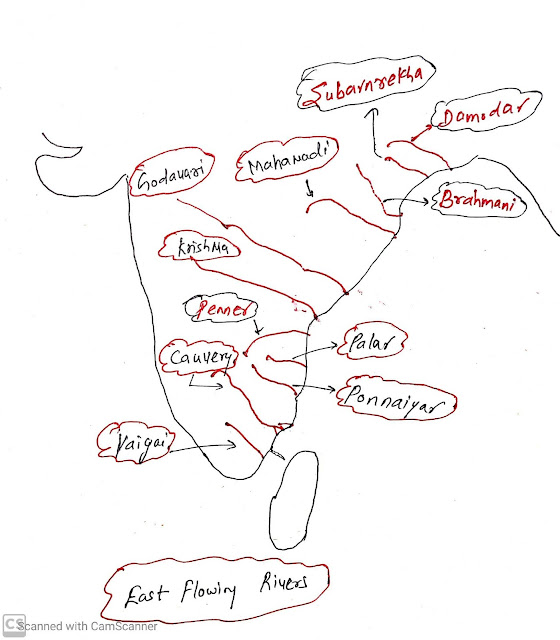 Subarnrekha
Damodar
Mahanadi
Godavari
Brahmani
Krishna
Penner
Palar
Cauvery
Ponnaiyar
Vaigai
East Flowing Rivers
CS Scanned with CamScanner